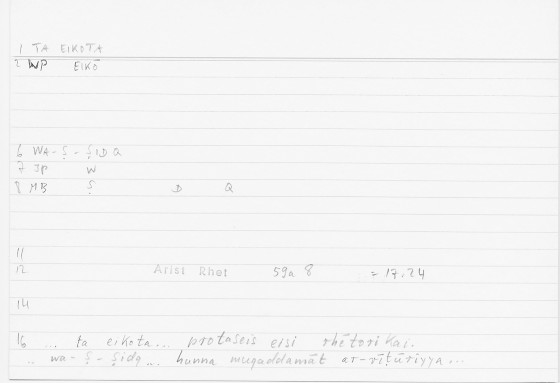 1 TA EIKOTA
2 WP EIKŌ
6 WA-Ṣ-ṢIDQ
7 JP W
8 MB Ṣ D Q
11
12 Arist Rhet 59a 8 = 17.24
14
16 ... ta eikota... protaseis eisi rhētorikai.
.. wa-ṣ-ṣidq ... hunna muqaddamāt ar-rīṭūriyya ...